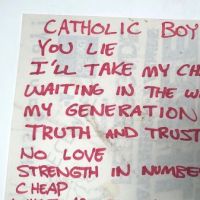 CATHOLIC BOY
YOU LIE
I'LL TAKE MY CH
WAITING IN THE W
MY GENERATION
TRUTH AND TRUST
NO LOVE
STRENGTH IN NUMBE
CHEAP